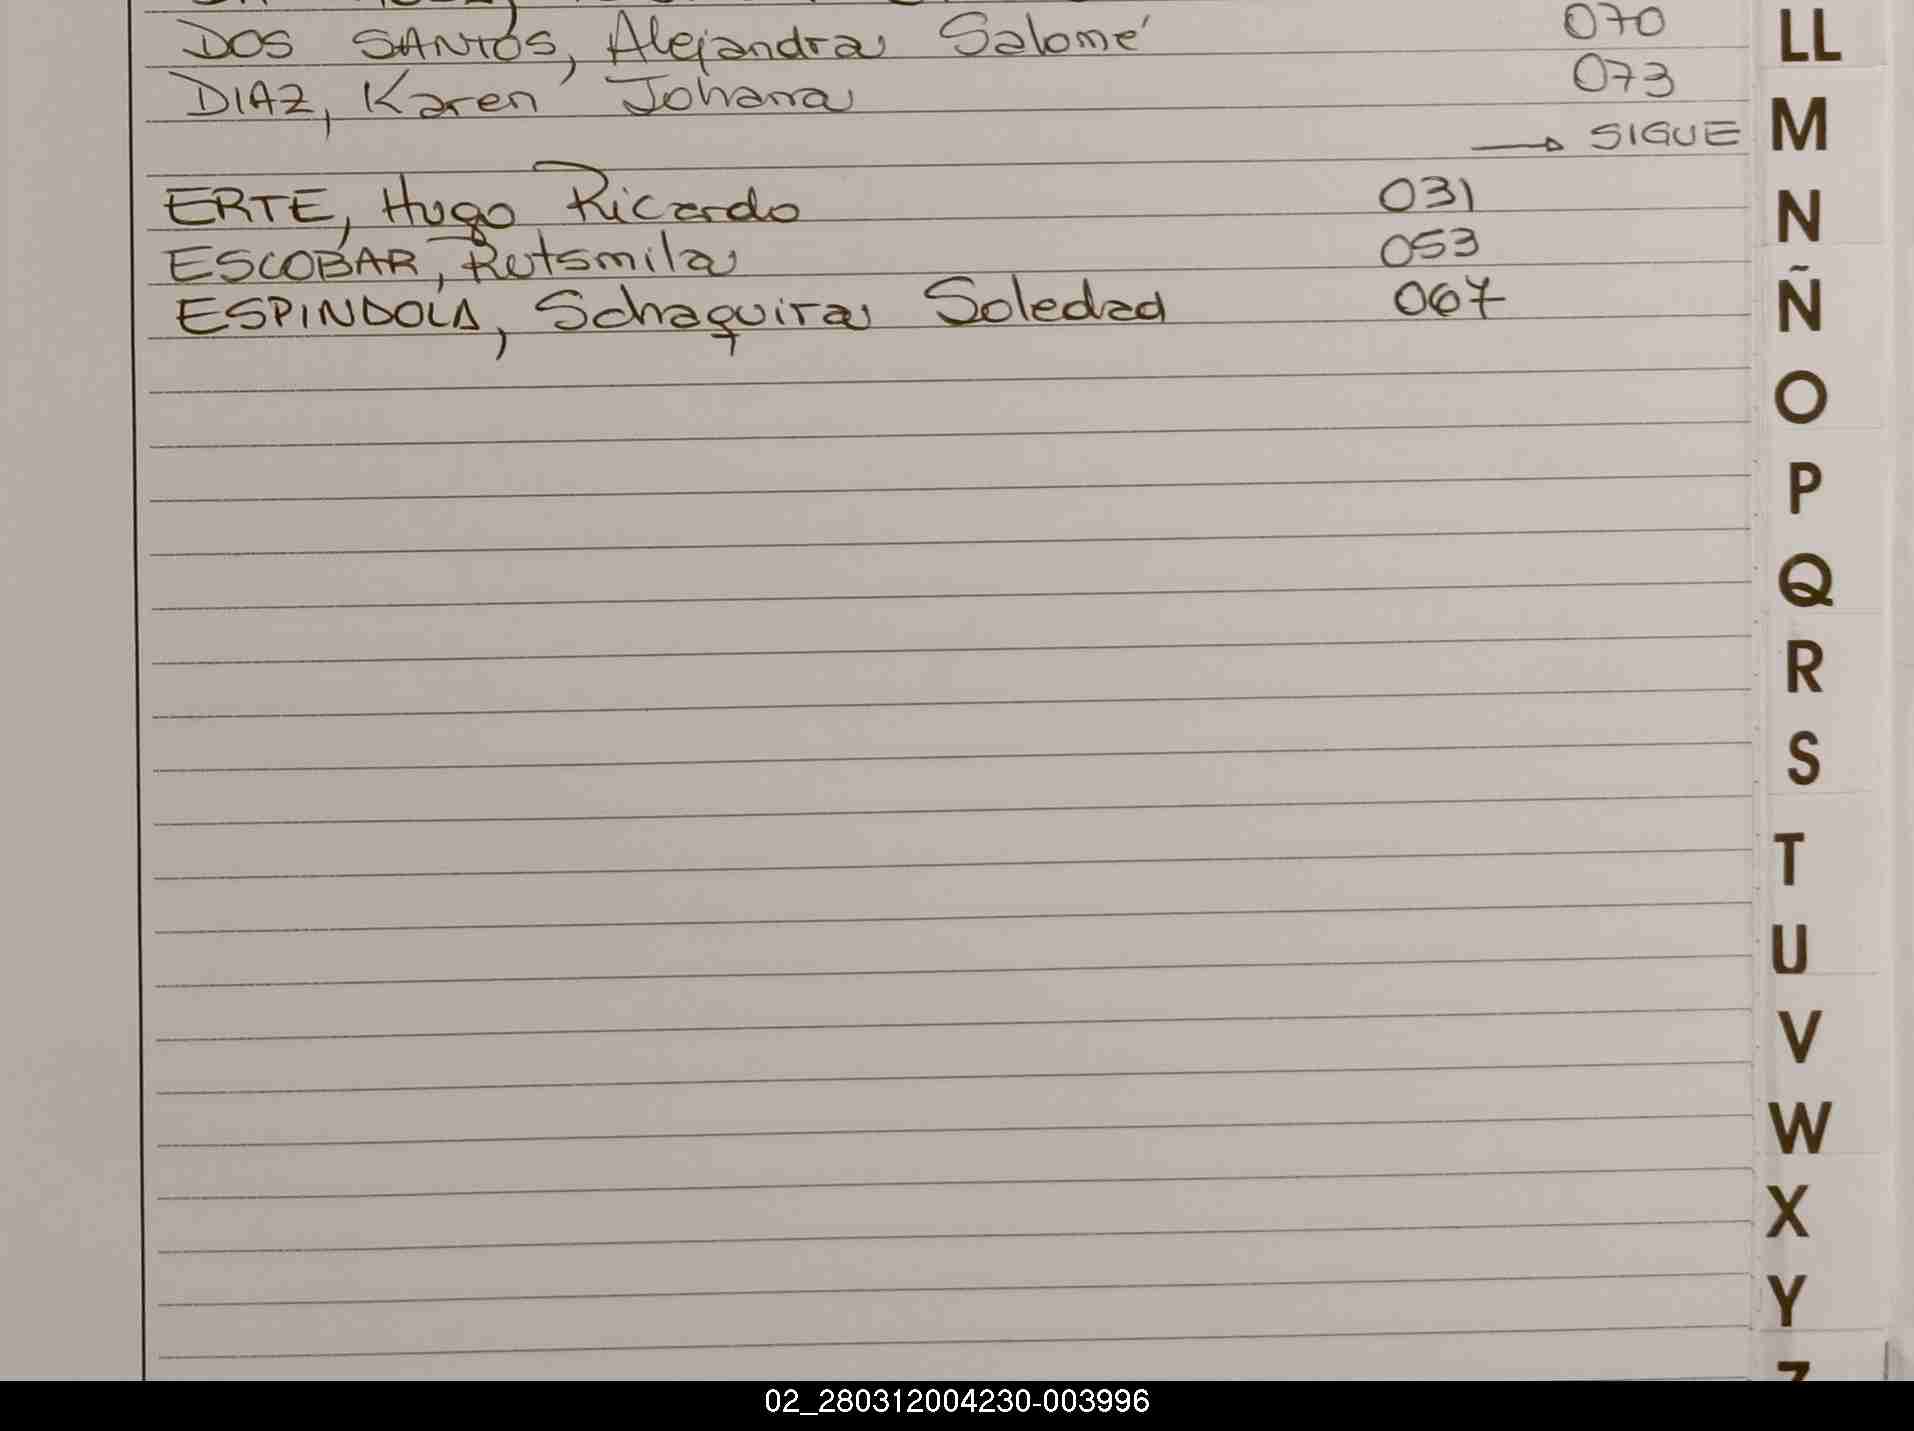 DOS SANTOS, Alejandra Salomé 070
DIAZ, Karen Johana 073
→ SIGUE
ERTE, Hugo Ricardo 031
ESCOBAR, Rutsmila 053
ESPINDOLA, Schaquira Soledad 067
LL
M
N
Ñ
O
P
Q
R
S
T
U
V
W
X
Y
Z
02_280312004230-003996